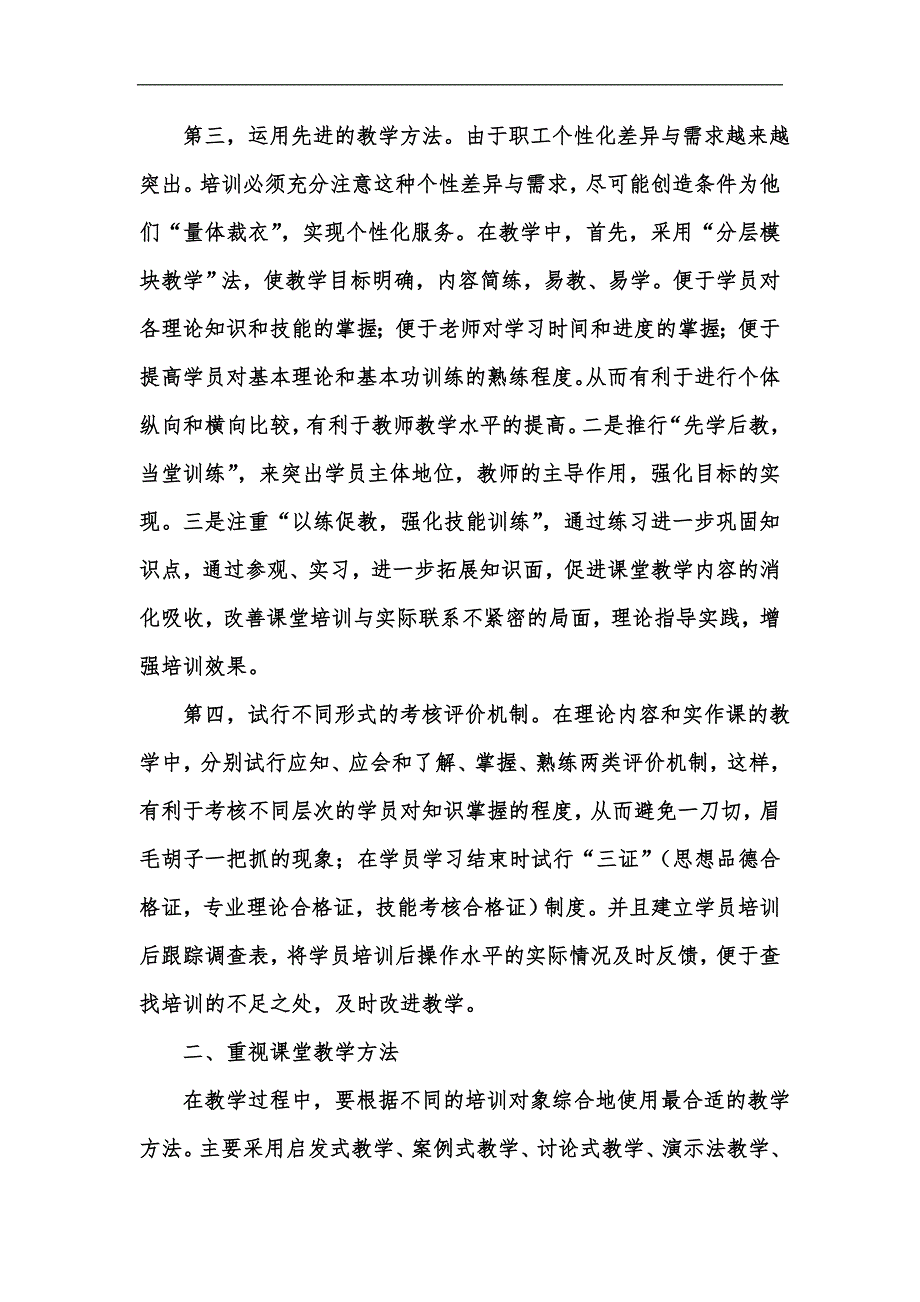 第三，运用先进的教学方法。由于职工个性化差异与需求越来越
突出。培训必须充分注意这种个性差异与需求，尽可能创造条件为他
们“量体裁衣”，实现个性化服务。在教学中，首先，采用“分层模
块教学”法，使教学目标明确，内容简练，易教、易学。便于学员对
各理论知识和技能的掌握；便于老师对学习时间和进度的掌握；便于
提高学员对基本理论和基本功训练的熟练程度。从而有利于进行个体
纵向和横向比较，有利于教师教学水平的提高。二是推行“先学后教，
当堂训练”，来突出学员主体地位，教师的主导作用，强化目标的实
现。三是注重“以练促教，强化技能训练”，通过练习进一步巩固知
识点，通过参观、实习，进一步拓展知识面，促进课堂教学内容的消
化吸收，改善课堂培训与实际联系不紧密的局面，理论指导实践，增
强培训效果。
第四，试行不同形式的考核评价机制。在理论内容和实作课的教
学中，分别试行应知、应会和了解、掌握、熟练两类评价机制，这样，
有利于考核不同层次的学员对知识掌握的程度，从而避免一刀切，眉
毛胡子一把抓的现象；在学员学习结束时试行“三证”（思想品德合
格证，专业理论合格证，技能考核合格证）制度。并且建立学员培训
后跟踪调查表，将学员培训后操作水平的实际情况及时反馈，便于查
找培训的不足之处，及时改进教学。
二、重视课堂教学方法
在教学过程中，要根据不同的培训对象综合地使用最合适的教学
方法。主要采用启发式教学、案例式教学、讨论式教学、演示法教学、